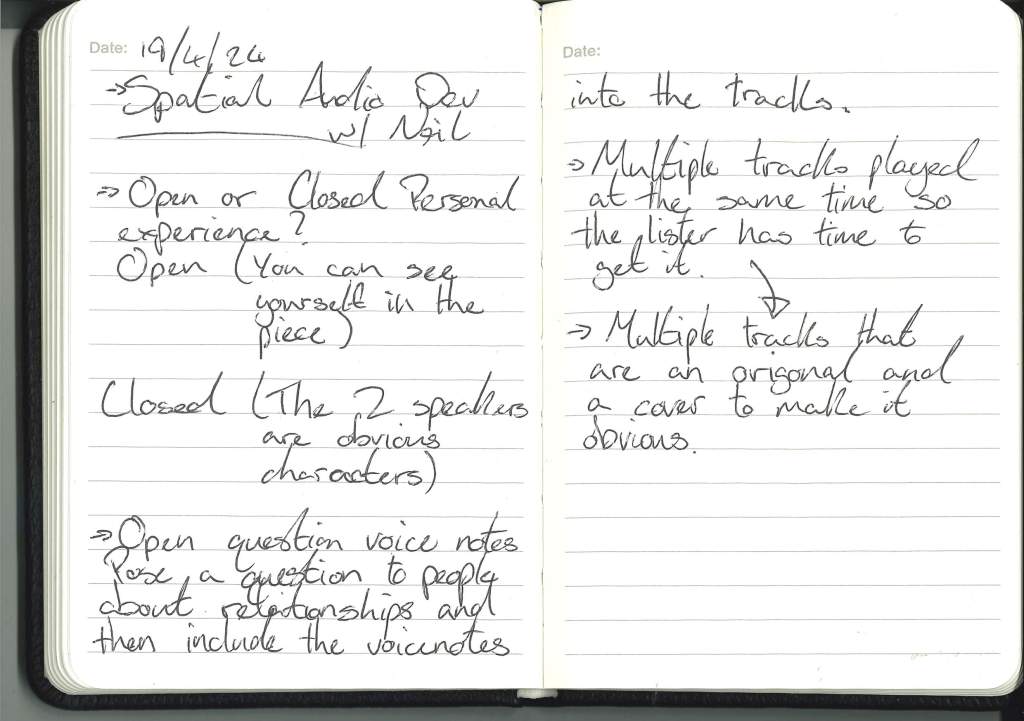 Date: 19/4/24
→Spatial Audio Dev
w/ Neil
→Open or Closed Personal
experience?
Open (You can see
yourself in the
piece)
Closed (The 2 speakers
are obvious
characters)
→Open question voice notes
Pose a question to people
about relationships and
then include the voicenotes
Date:
into the tracks.
→Multiple tracks played
at the same time so
the lister has time to
get it.
→Multiple tracks that
are an origonal and
a cover to make it
obvious.